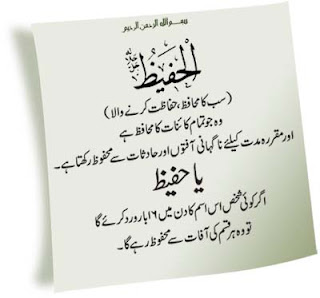 بسم اللہ الرحمن الرحیم
الحفیظ جل جلالہ
(سب کا محافظ، حفاظت کرنے والا)
وہ جو تمام کائنات کا محافظ ہے
اور مقررہ مدت کیلئے ناگہانی آفتوں اور حادثات سے محفوظ رکھتا ہے۔
یا حفیظ
اگر کوئی شخص اس اسم کا دن میں ۱۶ بار ورد کرئے گا
تو وہ ہر قسم کی آفات سے محفوظ رہے گا۔